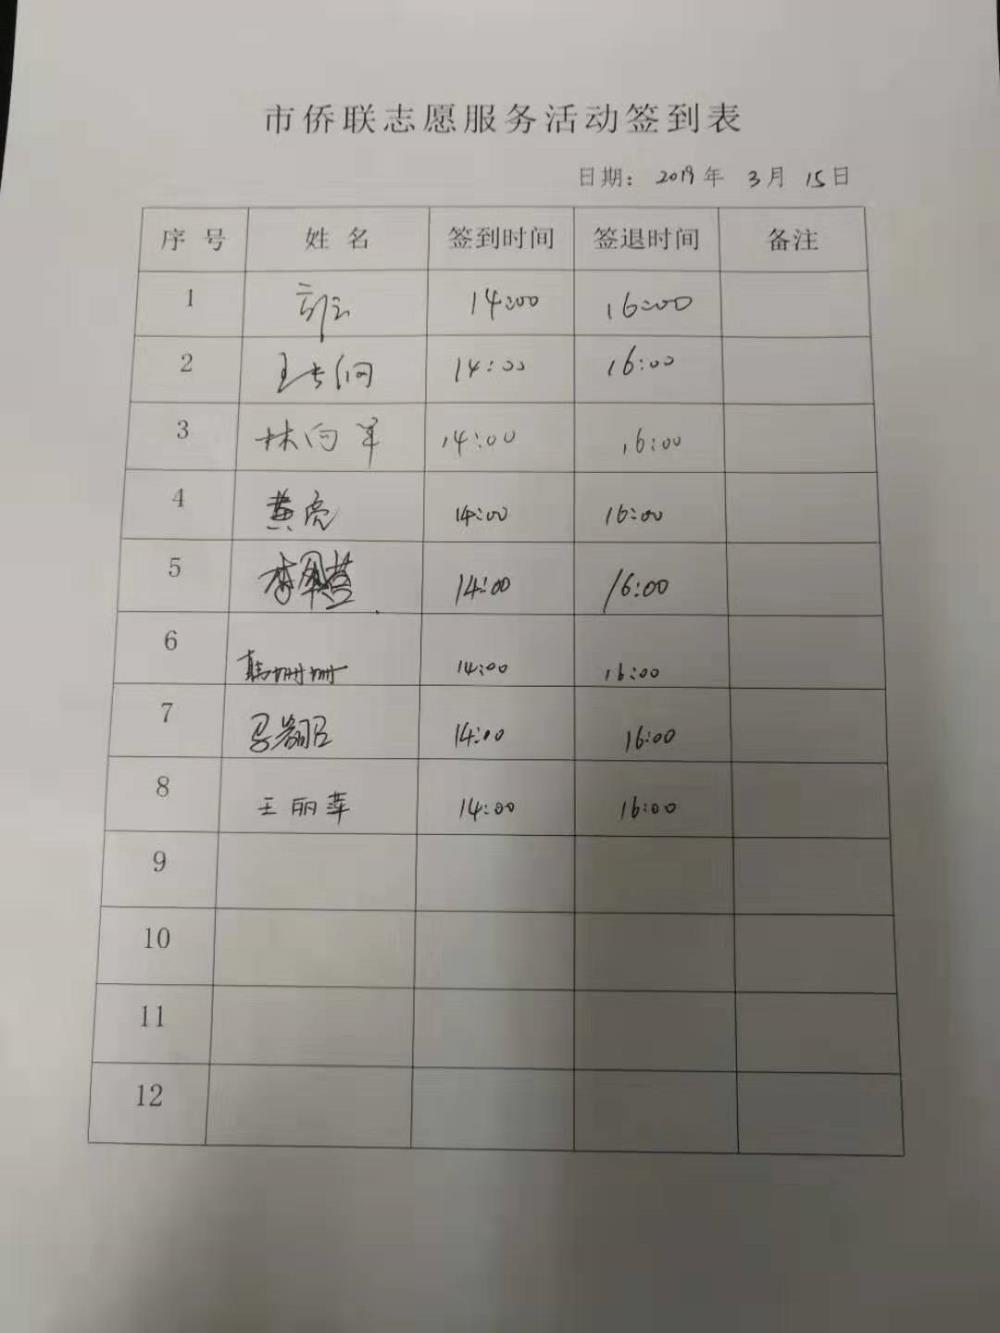 市侨联志愿服务活动签到表
日期: 2019年 3月 15日
序号 姓名 签到时间 签退时间 备注
1 14:00 16:00
2 14:00 16:00
3 林向军 14:00 16:00
4 黄亮 14:00 16:00
5 14:00 16:00
6 韩珊珊 14:00 16:00
7 14:00 16:00
8 王丽萍 14:00 16:00
9
10
11
12